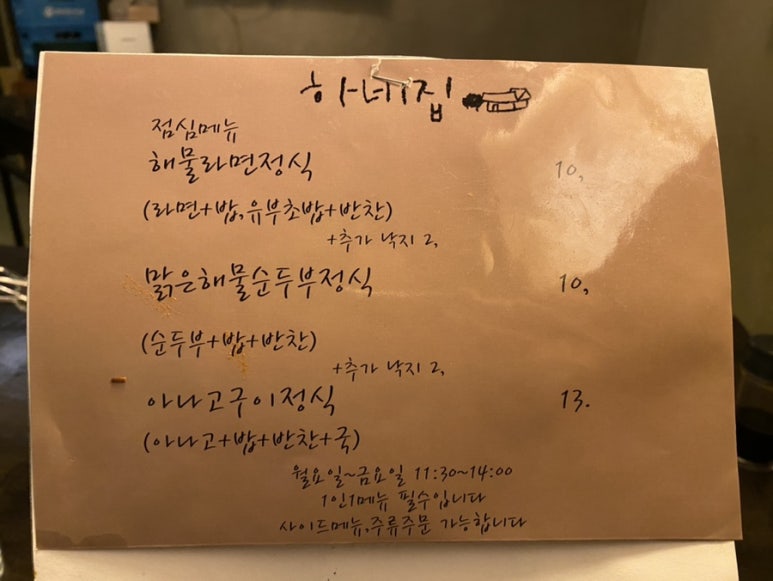 하네집
점심메뉴
해물라면정식 10,
(라면+밥,유부초밥+반찬)
+추가 낙지 2,
맑은해물순두부정식 10,
(순두부+밥+반찬)
+추가 낙지 2,
아나고구이정식 13.
(아나고+밥+반찬+국)
월요일~금요일 11:30~14:00
1인1메뉴 필수입니다
사이드메뉴,주류주문 가능합니다